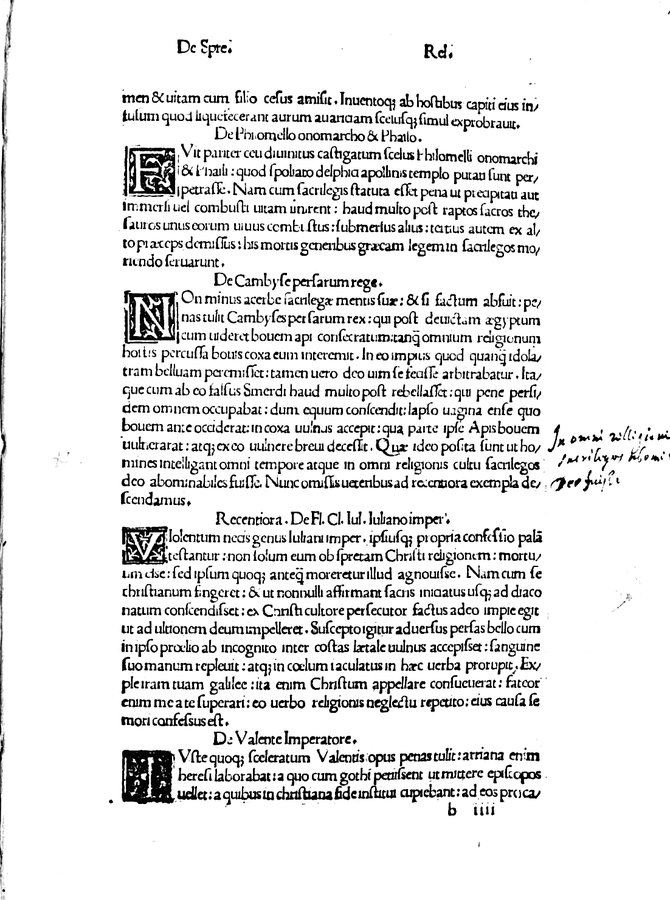 De Spre. Rel.
men & uitam cum filio cesus amisit. Inuentoq; ab hostibus capiti eius in/
fusum quod liquefecerant aurum auaritiam scelusq; simul exprobrauit.
De Philomello onomarcho & Phailo.
FVit pariter ceu diuinitus castigatum scelus Philomelli onomarchi
& Phaili: quod spoliato delphis apollinis templo putati sunt per/
petrasse. Nam cum sacrilegis statuta esset pena ut precipitati aut
immersi uel combusti uitam finirent: haud multo post raptos sacros the/
sauros unus eorum uiuus combustus: submersus alius: tertius autem ex al/
to præceps demissus: his mortis generibus græcam legem in sacrilegos mo/
riendo seruarunt.
De Cambyse persarum rege.
NOn minus acerbe sacrilegæ mentis suæ: & si factum absuit: pe/
nas tulit Cambyses persarum rex: qui post deuictam ægyptum
cum uideret bouem api consecratum: tanq̃ omnium religionum
hostis percussa bouis coxa eum interemit. In eo impius quod quanq̃ idola/
tram belluam peremisset: tamen uero deo uim se fecisse arbitrabatur. Ita/
que cum ab eo falsus Smerdi haud multo post rebellasset: qui pene persi/
dem omnem occupabat: dum equum conscendit: lapso uagina ense quo
bouem ante occiderat: in coxa uulnus accepit: qua parte ipse Apis bouem
uulnerarat: atq; ex eo uulnere breui decessit. Quæ ideo posita sunt ut ho/
mines intelligant omni tempore atque in omni religionis cultu sacrilegos
deo abominabiles fuisse. Nunc omissis ueteribus ad recentiora exempla de/
scendamus.
In omni
deo fuisse
Recentiora. De Fl. Cl. Iul. Iuliano imper.
VIolentum necis genus Iuliani imper. ipsiusq; propria confessio palã
testantur: non solum eum ob spretam Christi religionem: mortu/
um esse: sed ipsum quoq; anteq̃ moreretur illud agnouisse. Nam cum se
christianum fingeret: & ut nonnulli affirmant sacris iniciatus usq; ad diaco
natum conscendisset: ex Christi cultore persecutor factus adeo impie egit
ut ad ultionem deum impelleret. Suscepto igitur aduersus persas bello cum
in ipso prœlio ab incognito inter costas lætale uulnus accepisset: sanguine
suo manum repleuit: atq; in cœlum iaculatus in hæc uerba prorupit. Ex/
pleiram tuam galilee: ita enim Christum appellare consueuerat: fateor
enim me a te superari: eo uerbo religionis neglectu repetito: eius causa se
mori confessus est.
De Valente Imperatore.
IVste quoq; sceleratum Valentis opus penas tulit: arriana enim
heresi laborabat: a quo cum gothi petissent ut mittere episcopos
uellet: a quibus in christiana fide institui cupiebant: ad eos proca/
b iiii